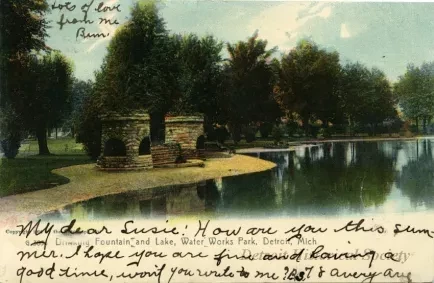 lots of love
from me
My dear Susie: How are you this sum-
Drinking Fountain and Lake, Water Works Park, Detroit, Mich
Detroit Historical Society
mer. I hope you are fine and having a
good time, won't you write to me?